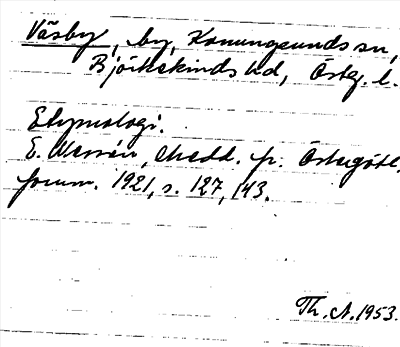 Väsby, by, Konungsunds sn,
Björkekinds hd, Östg. l.
Etymologi.
E. Wessén, Medd. fr. Östergötl.
fornm. 1921, s. 127, 143.
Th. A. 1953.